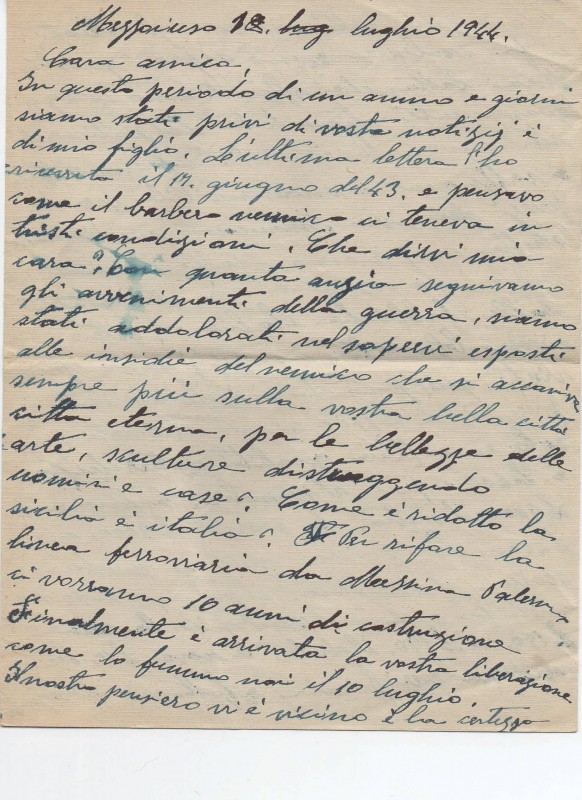 Mezzoiuso luglio 1944.
Cara amica,
In questo periodo di un anno e giorni
siamo stati privi di vostre notizij é
di mio figlio. L'ultima lettera l'ho
ricevuta il 17. giugno del 43. e pensavo
come il barbero nemico ci teneva in
tristi condizioni. Che dirvi mia
cara? Con quanta anzia seguivamo
gli avvenimenti della guerra, siamo
stati addolorati nel sapervi esposti
alle insidie del nemico che si accaniva
sempre più sulla vostra bella città
città eterna, per le bellezze delle
arte, sculture distruggendo
uomini e case? Come é ridotto la
sicilia é italia? Per rifare la
linea ferroviaria da Messina Palermo
ci vorranno 10 anni di costruzione
Finalmente é arrivata la vostra liberazione
come lo fummo noi il 10 luglio.
Il nostro pensiero vi é vicino é ha certezza